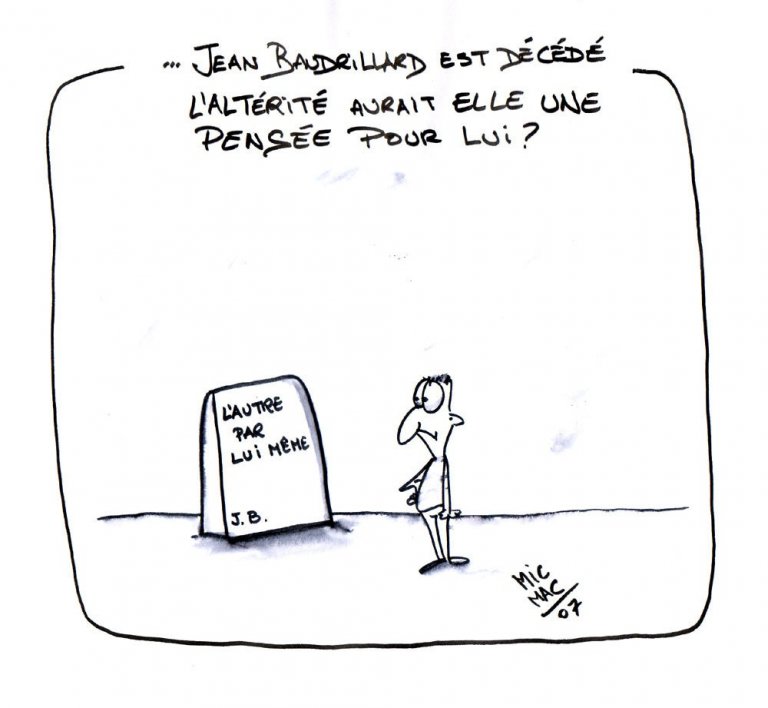 ... JEAN BAUDRILLARD EST DÉCÉDÉ
L'ALTÉRITÉ AURAIT ELLE UNE
PENSÉE POUR LUI ?
L'AUTRE
PAR
LUI MÊME
J.B.
MIC
MAC
07